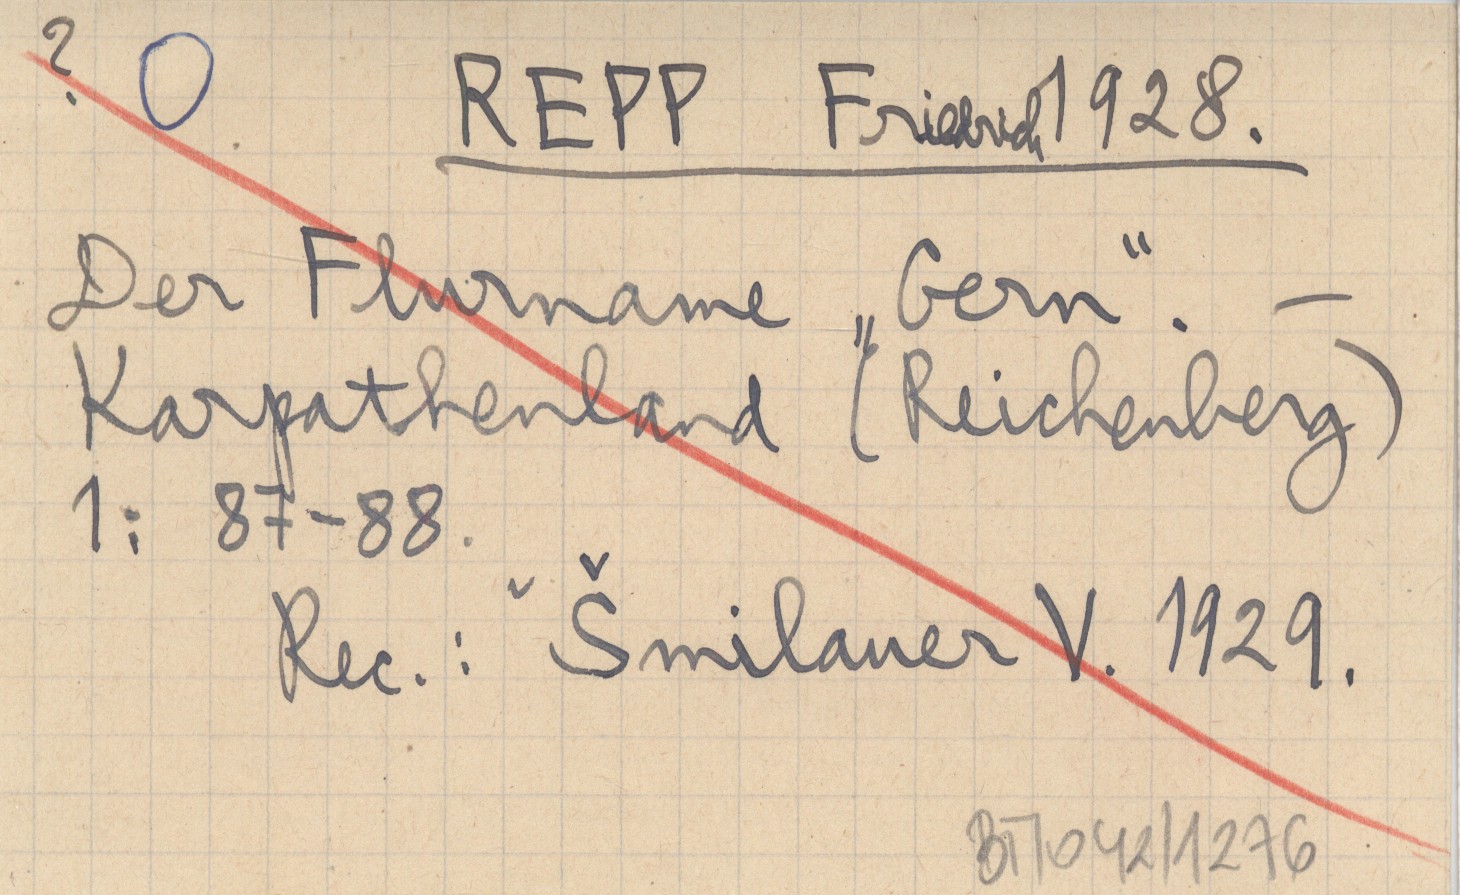 ? O
REPP Friedrich 1928.
Der Flurname „Gern“. —
Karpathenland (Reichenberg)
1: 87-88.
Rec.: Šmilauer V. 1929.
BT/042/1276